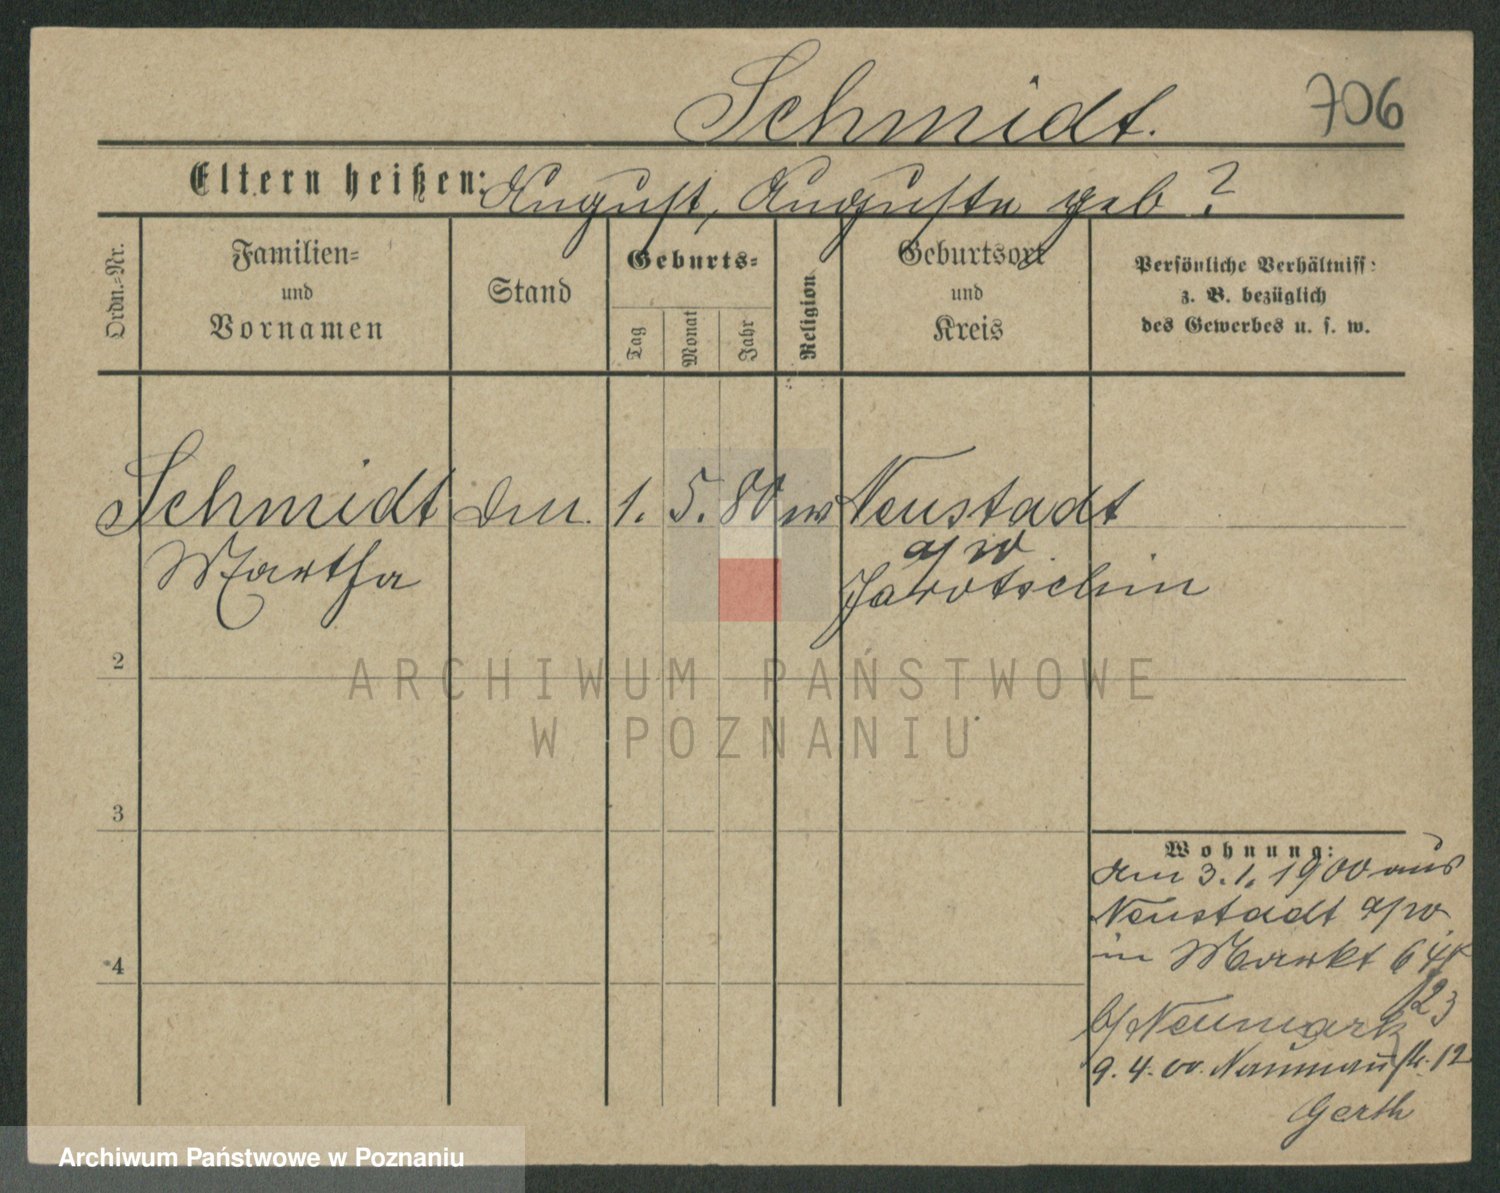 Schmidt.
706
Eltern heißen: August, Auguste geb ?
Ordn.-Nr.
Familien-
und
Vornamen
Stand
Geburts-
Tag
Monat
Jahr
Religion
Geburtsort
und
Kreis
Persönliche Verhältniss:
z. B. bezüglich
des Gewerbes u. s. w.
Schmidt 1. 5. 80 Neustadt
a/W
Martha
Jarotschin
2
ARCHIWUM PAŃSTWOWE
W POZNANIU
3
Wohnung:
3.1.1900 aus
Neustadt a/W
in Markt
4
b/Neumark
9.4.00. Naumannstr. 12
Gerth
Archiwum Państwowe w Poznaniu